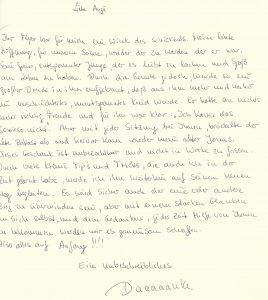 Liebe Angi
Ihr Flyer war für mich ein Wink des Schicksals. Meine letzte
Hoffnung, für meinen Sohn, wieder der zu werden der er war.
Ein freier, entspannter Junge der es liebt zu lachen und Spaß
am Leben zu haben. Durch die Schule jedoch, wurde so ein
großer Druck in ihm aufgebaut, daß aus ihm mehr und mehr
ein verschüchtertes, unentspanntes Kind wurde. Er hatte an nichts
mehr richtig Freude und für ihn war klar, "Ich kann das
sowieso nicht". Aber mit jeder Sitzung bei Ihnen, bröckelte der
alte Ballast ab und hervor kam wieder mein alter Jonas.
Dieses Geschenk ist unbezahlbar und nicht in Worte zu fassen.
Durch viele kleine Tipps und Tricks, die auch ich in der
Zeit gelernt habe, werde ich ihn weiterhin auf seinem neuen
Weg begleiten. Es wird sicher auch der eine oder andere
Berg zu überwinden sein, aber mit einem starken Glauben
an sich selbst, und dem Gedanken, jede Zeit Hilfe von Ihnen
zu bekommen werden wir es gemeinsam schaffen.
Also alles auf Anfang !!!!
Ein unbeschreibliches
Daaaaanke